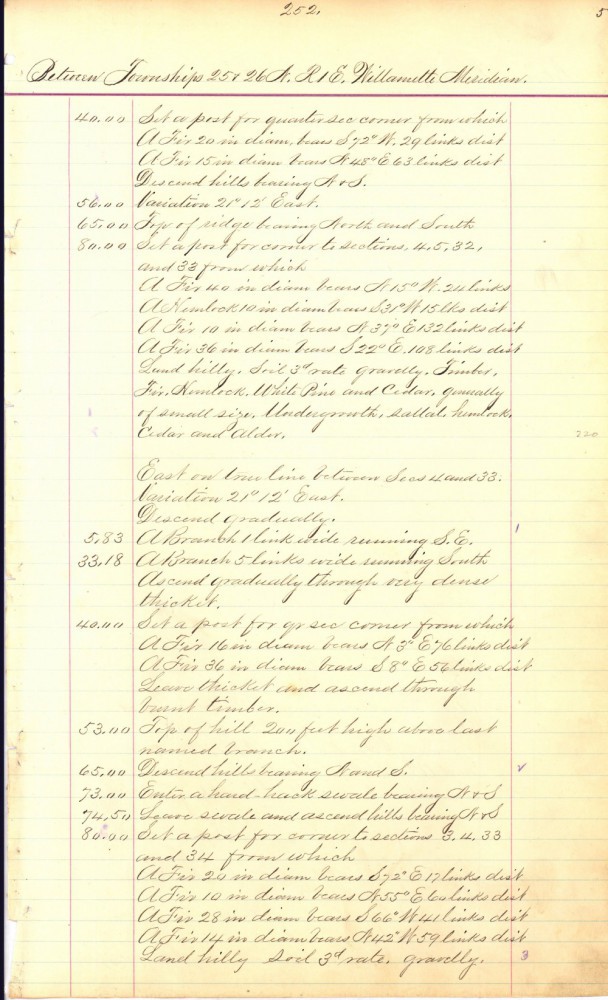 252.
5
Between Townships 25 & 26 N. R 1 E. Willamette Meridian.
40.00 Set a post for quarter sec corner from which
A Fir 20 in diam, bears S 72° W. 29 links dist
A Fir 15 in diam bears N 48° E 63 links dist
Descend hills bearing N & S.
56.00 Variation 21° 12' East.
65.00 Top of ridge bearing North and South
80.00 Set a post for corner to sections, 4, 5, 32,
and 33 from which
A Fir 40 in diam bears N 15° W. 24 links
A Hemlock 10 in diam bears S 31° W 15 lks dist
A Fir 10 in diam bears N 37° E 132 links dist
A Fir 36 in diam bears S 22° E. 108 links dist
Land hilly. Soil 3d rate gravelly. Timber,
Fir, Hemlock, White Pine and Cedar, generally
of small size, Undergrowth, sallal, hemlock,
Cedar and Alder.
220
East on true line between Secs 4 and 33.
Variation 21° 12' East.
Descend gradually.
5,83 A Branch 1 link wide running S. E.
33,18 A Branch 5 links wide running South
Ascend gradually through very dense
thicket.
40.00 Set a post for qr sec corner from which
A Fir 16 in diam bears N 3° E 76 links dist
A Fir 36 in diam bears S 8° E 56 links dist
Leave thicket and ascend through
burnt timber.
53.00 Top of hill 200 feet high above last
named branch.
65,00 Descend hills bearing N and S.
73.00 Enter a hard-hack swale bearing N & S
74,50 Leave swale and ascend hills bearing N & S
80.00 Set a post for corner to sections 3. 4. 33
and 34 from which
A Fir 20 in diam bears S 72° E 17 links dist
A Fir 10 in diam bears N 55° E 60 links dist
A Fir 28 in diam bears S 66° W 41 links dist
A Fir 14 in diam bears N 42° W 59 links dist
Land hilly Soil 3d rate, gravelly. 3